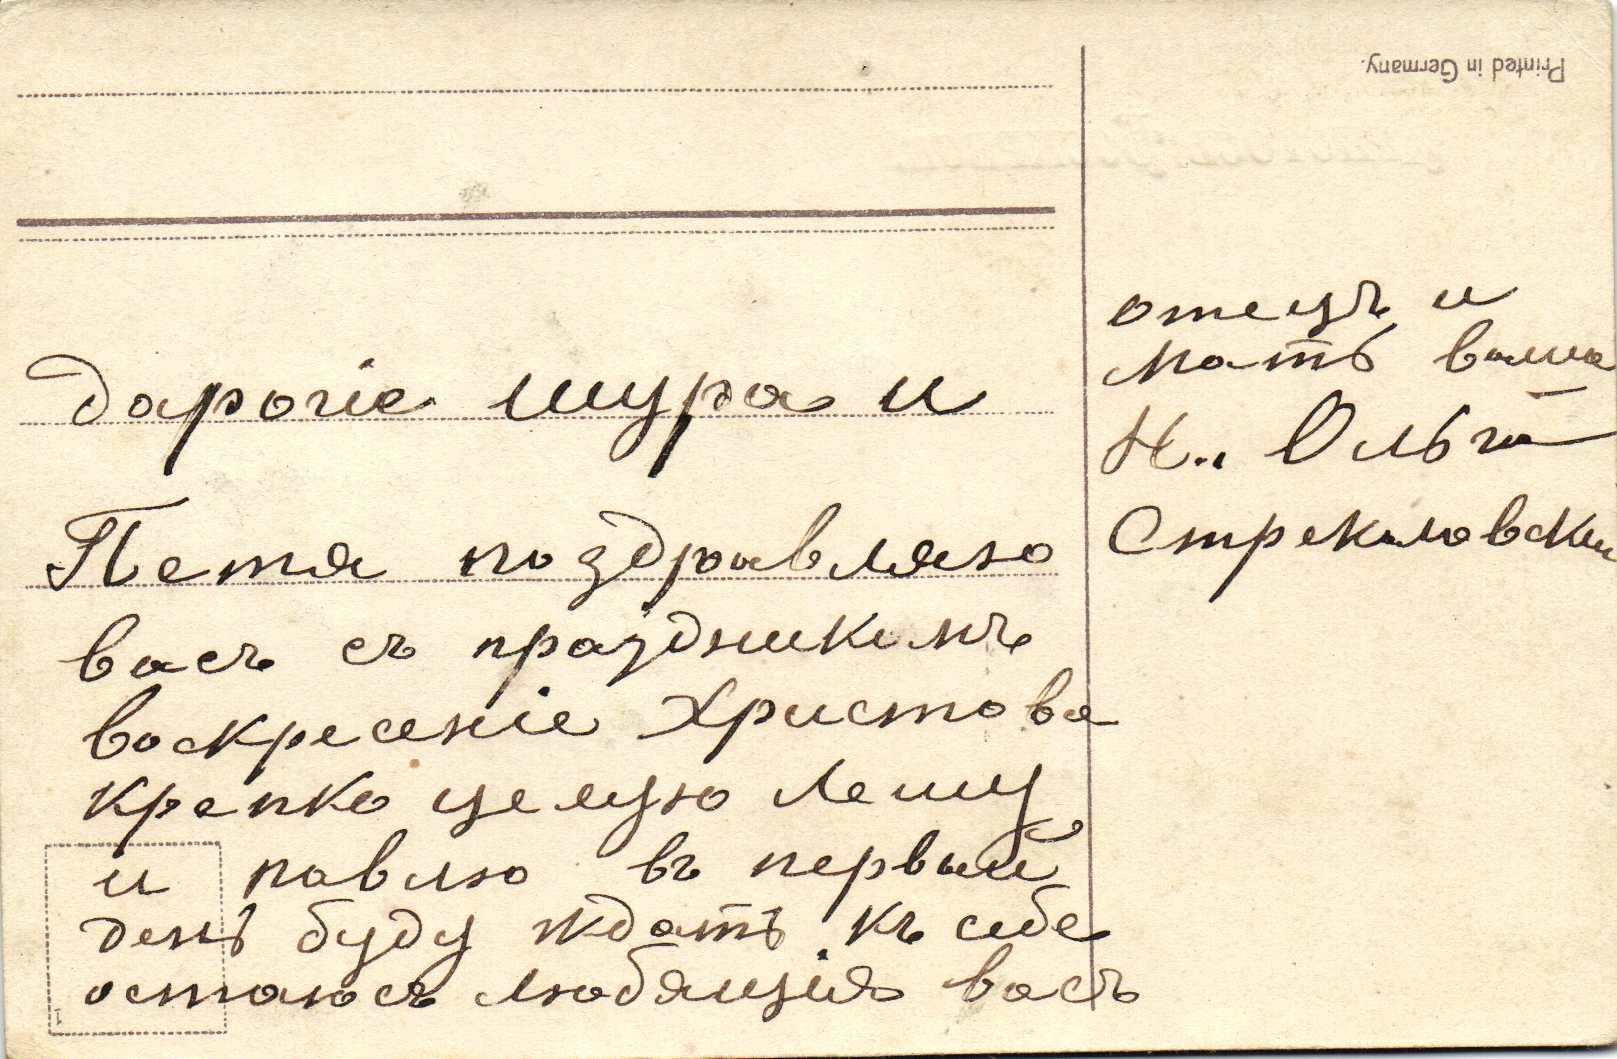 Дарогіе шура и
Петя поздравляю
васъ съ праздникомъ
воскресеніе Христова
крепко целую Лешу
и павлю въ первый
день буду ждать къ себе
остаюсь любящія васъ
отецъ и
мать ваша
Н.. Ольга
Стрекаловски
Printed in Germany.
1